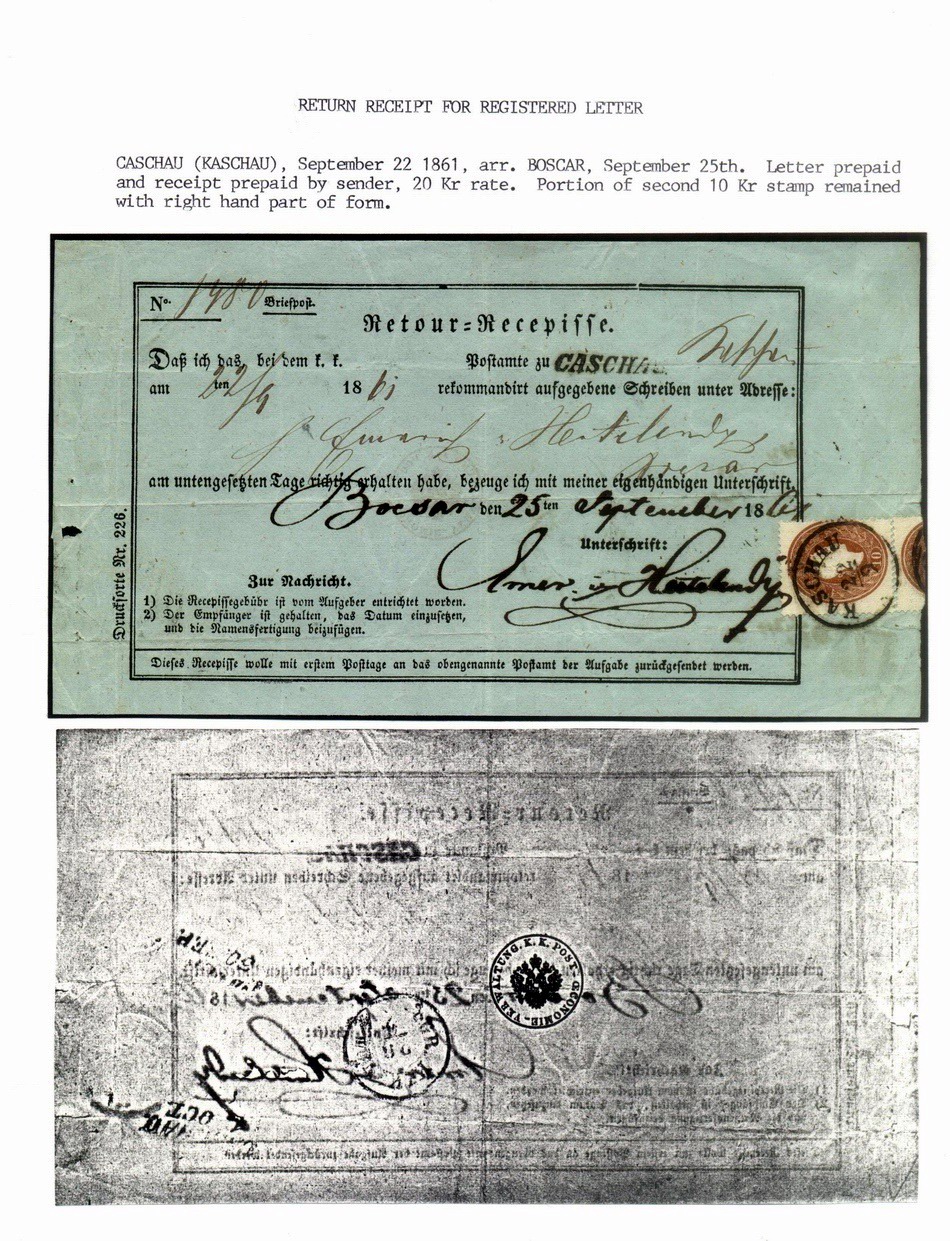 RETURN RECEIPT FOR REGISTERED LETTER
CASCHAU (KASCHAU), September 22 1861, arr. BOSCAR, September 25th. Letter prepaid
and receipt prepaid by sender, 20 Kr rate. Portion of second 10 Kr stamp remained
with right hand part of form.
No. 1480 Briefpost.
Retour=Recepisse.
Daß ich das, bei dem k. k. Postamte zu CASCHAU
am 22/9 ten 18 61 rekommandirt aufgegebene Schreiben unter Adresse:
am untengesetzten Tage richtig erhalten habe, bezeuge ich mit meiner eigenhändigen Unterschrift.
Bocsar den 25 ten September 18 61
Unterschrift:
Zur Nachricht.
1) Die Recepissegebühr ist vom Aufgeber entrichtet worden.
2) Der Empfänger ist gehalten, das Datum einzusetzen,
und die Namensfertigung beizufügen.
Dieses Recepisse wolle mit erstem Posttage an das obengenannte Postamt der Aufgabe zurückgesendet werden.
Drucksorte Nr. 226.
KASCHAU
K. K. POST-OECONOMIE-VERWALTUNG.